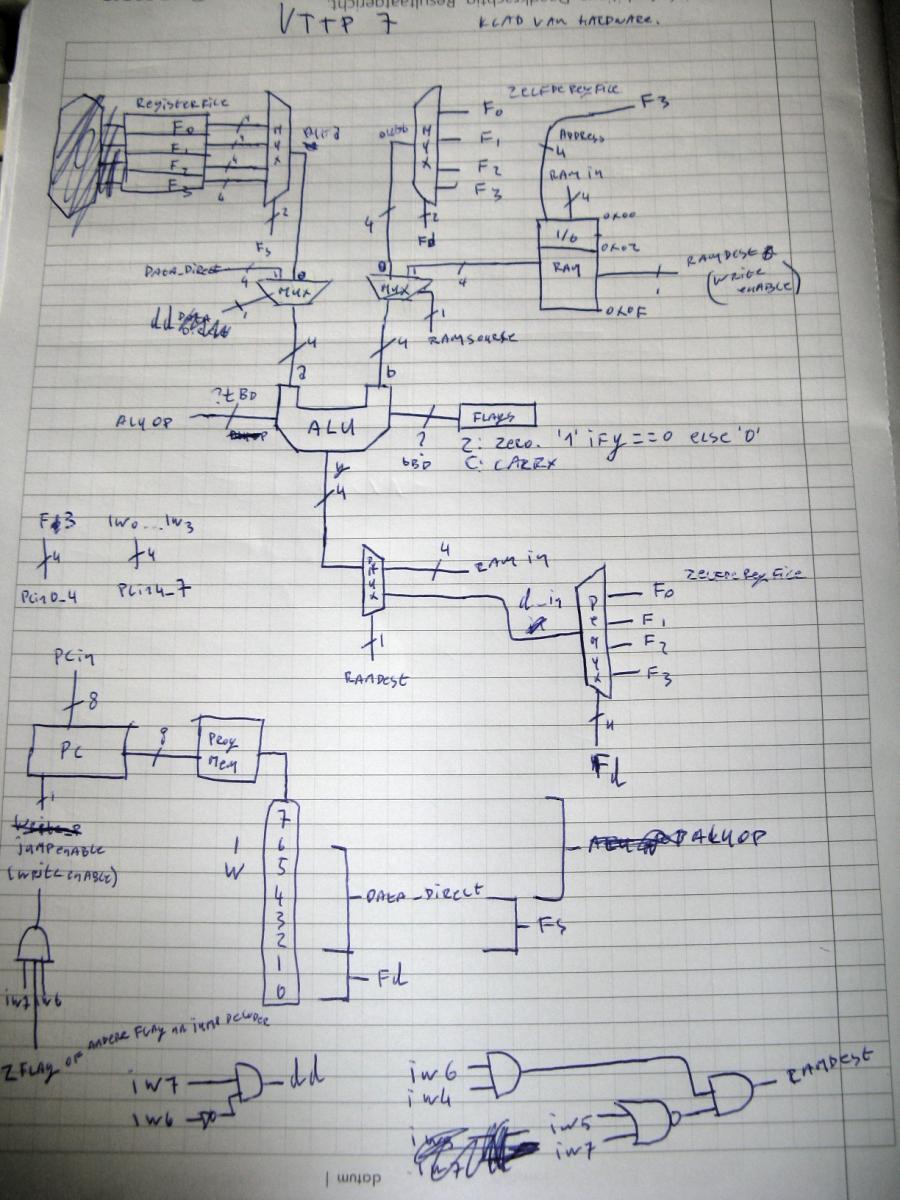 VTTP 7
KLAD VAN HARDWARE.
RegisterFile
F0
F1
F2
F3
MUX
2
Fs
outb
MUX
ZELFDE REGFILE
F0
F1
F2
F3
4
2
Fd
F3
ADDRESS
4
RAM in
4
0x00
I/O
0x02
RAM
0x0F
1
RAMDEST
(WRITE
ENABLE)
DATA_DIRECT
4
1
0
MUX
dd
1
0
1
MUX
4
1
RAMSOURCE
4
4
a
b
ALU OP
?tBD
ALU
?
tBD
FLAGS
Z: zero. '1' if y==0 else '0'
C: CARRY
y
4
F3
IW0...IW3
4
4
PCin0_4
PCin4_7
DEMUX
4
RAM in
1
RAMDEST
d_in
DEMUX
ZELFDE REGFILE
F0
F1
F2
F3
Fd
PCin
8
PC
8
Prog
Mem
1
jumpENABLE
(WRITE ENABLE)
I
W
7
6
5
4
3
2
1
0
DATA_DIRECT
Fs
Fd
ALUOP
iw7
iw6
ZFLAG OF ANDERE FLAG NA JUMP DECODER
iw7
iw6
dd
iw6
iw4
iw5
iw7
RAMDEST
datum |